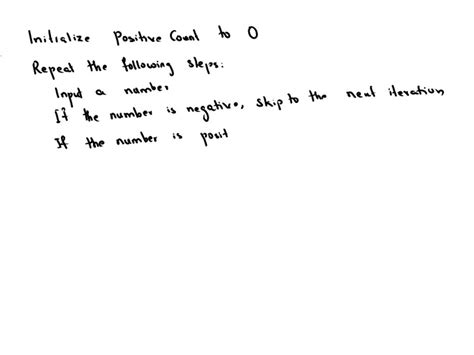 Initialize Positive Count to 0
Repeat the following steps:
Input a number
If the number is negative, skip to the next iteration,
If the number is posit